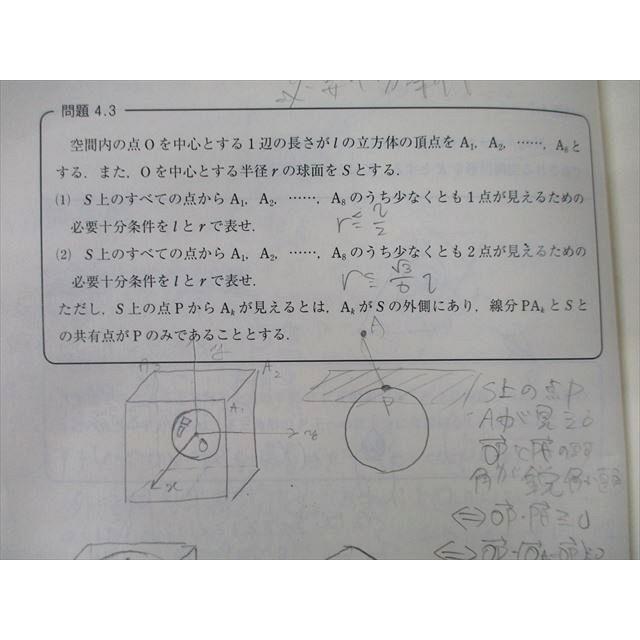 問題 4.3
空間内の点Oを中心とする1辺の長さがlの立方体の頂点をA₁, A₂, ……, A₈と
する. また, Oを中心とする半径rの球面をSとする.
(1) S上のすべての点からA₁, A₂, ……, A₈のうち少なくとも1点が見えるための
必要十分条件をlとrで表せ.
r≦l/2
(2) S上のすべての点からA₁, A₂, ……, A₈のうち少なくとも2点が見えるための
必要十分条件をlとrで表せ.
r≦√3/6 l
ただし, S上の点PからAₖが見えるとは, AₖがSの外側にあり, 線分PAₖとSと
の共有点がPのみであることとする.
A
A₂
A₁
P
O
x
P
S上の点P
Aが見える
⇔
⇔